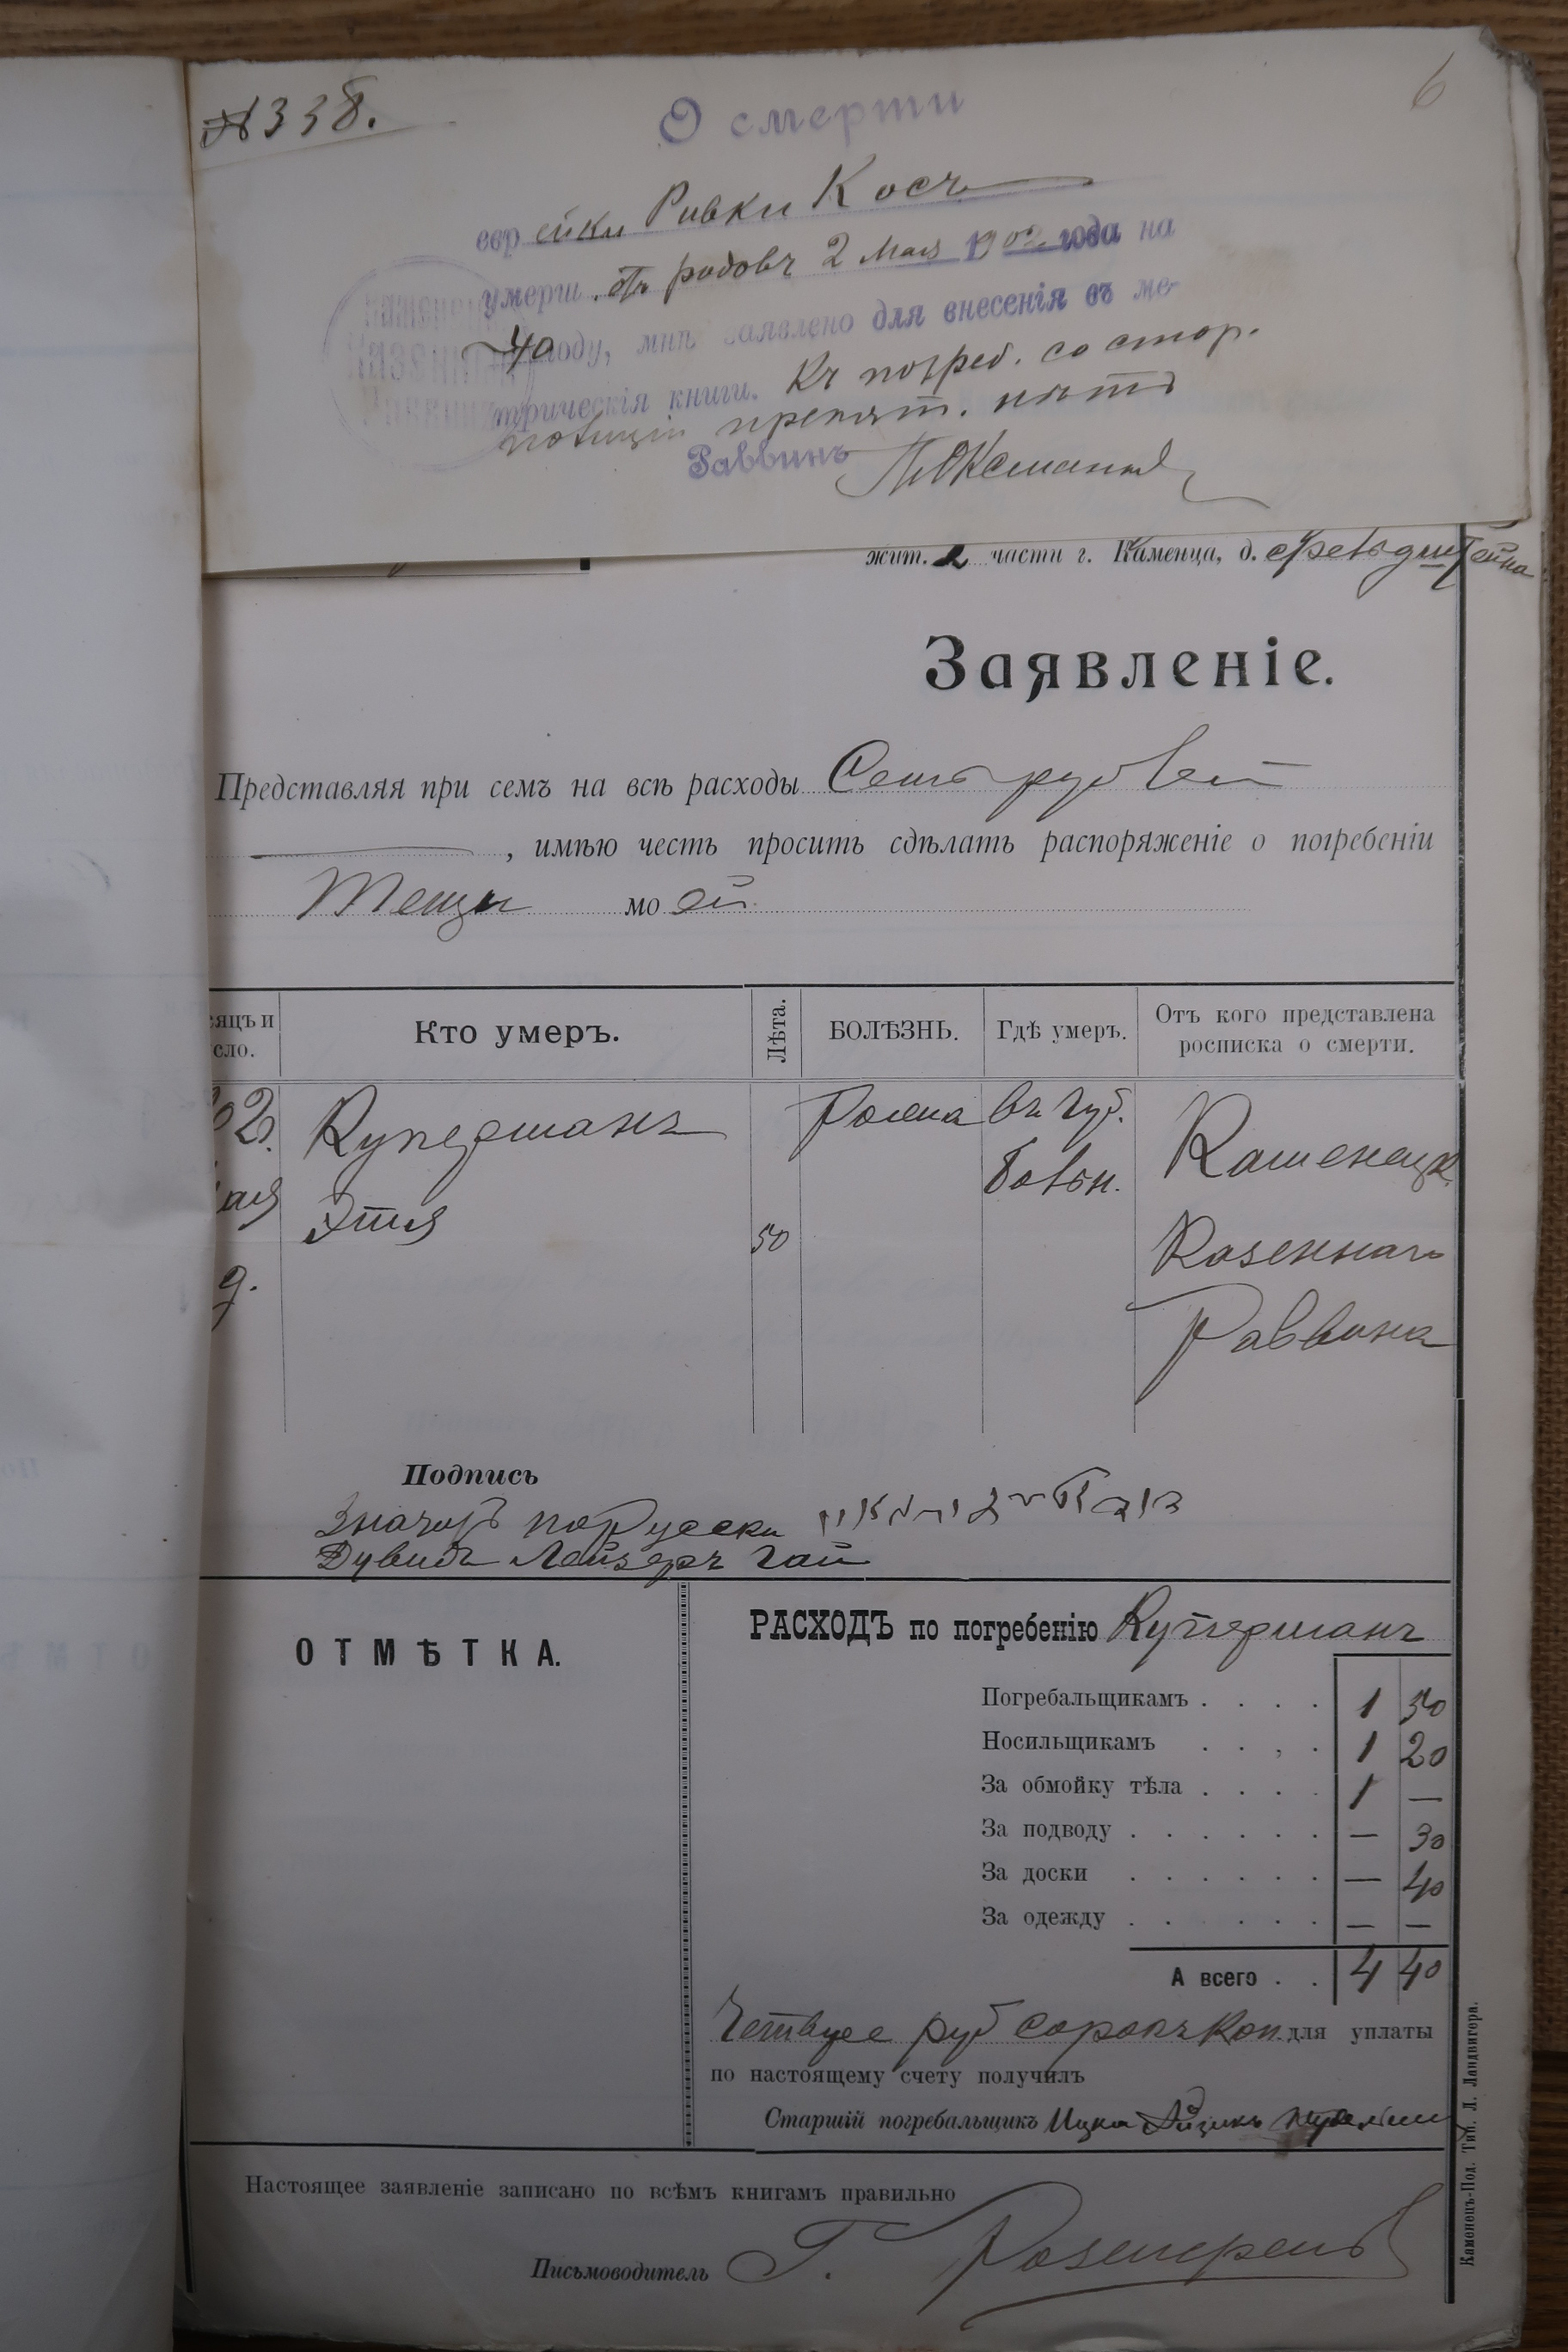 № 338.
6
О смерти
еврейки Ривки Косъ
умерш. отъ родовъ 2 Мая 1902 года на
40 году, мнѣ заявлено для внесенія въ ме-
трическія книги. Къ погреб. со стор.
полиціи препят. нѣтъ
Раввинъ
жит. 2 части г. Каменца, д.
Заявленіе.
Представляя при семъ на всѣ расходы Семь рублей
, имѣю честь просить сдѣлать распоряженіе о погребеніи
Тещи моей
сяцъ и
сло.
Кто умеръ.
Лѣта.
БОЛѢЗНЬ.
Гдѣ умеръ.
Отъ кого представлена
росписка о смерти.
02
ая
д.
Куперманъ
Этя
50
Рожа
въ Губ.
Больн.
Каменецк.
Казеннаго
Раввина
Подпись
Значитъ по Русски
Дувидъ Лейзеръ Гай
ОТМѢТКА.
РАСХОДЪ по погребенію Куперманъ
Погребальщикамъ . . . . 1 50
Носильщикамъ . . , . 1 20
За обмойку тѣла . . . . 1 —
За подводу . . . . . . — 30
За доски . . . . . . — 40
За одежду . . . . . . — —
А всего . . 4 40
Четыре руб сорокъ коп. для уплаты
по настоящему счету получилъ
Старшій погребальщикъ Ицко Айзикъ
Настоящее заявленіе записано по всѣмъ книгамъ правильно
Письмоводитель Г.
Каменецъ-Под. Тип. Л. Ландвигера.